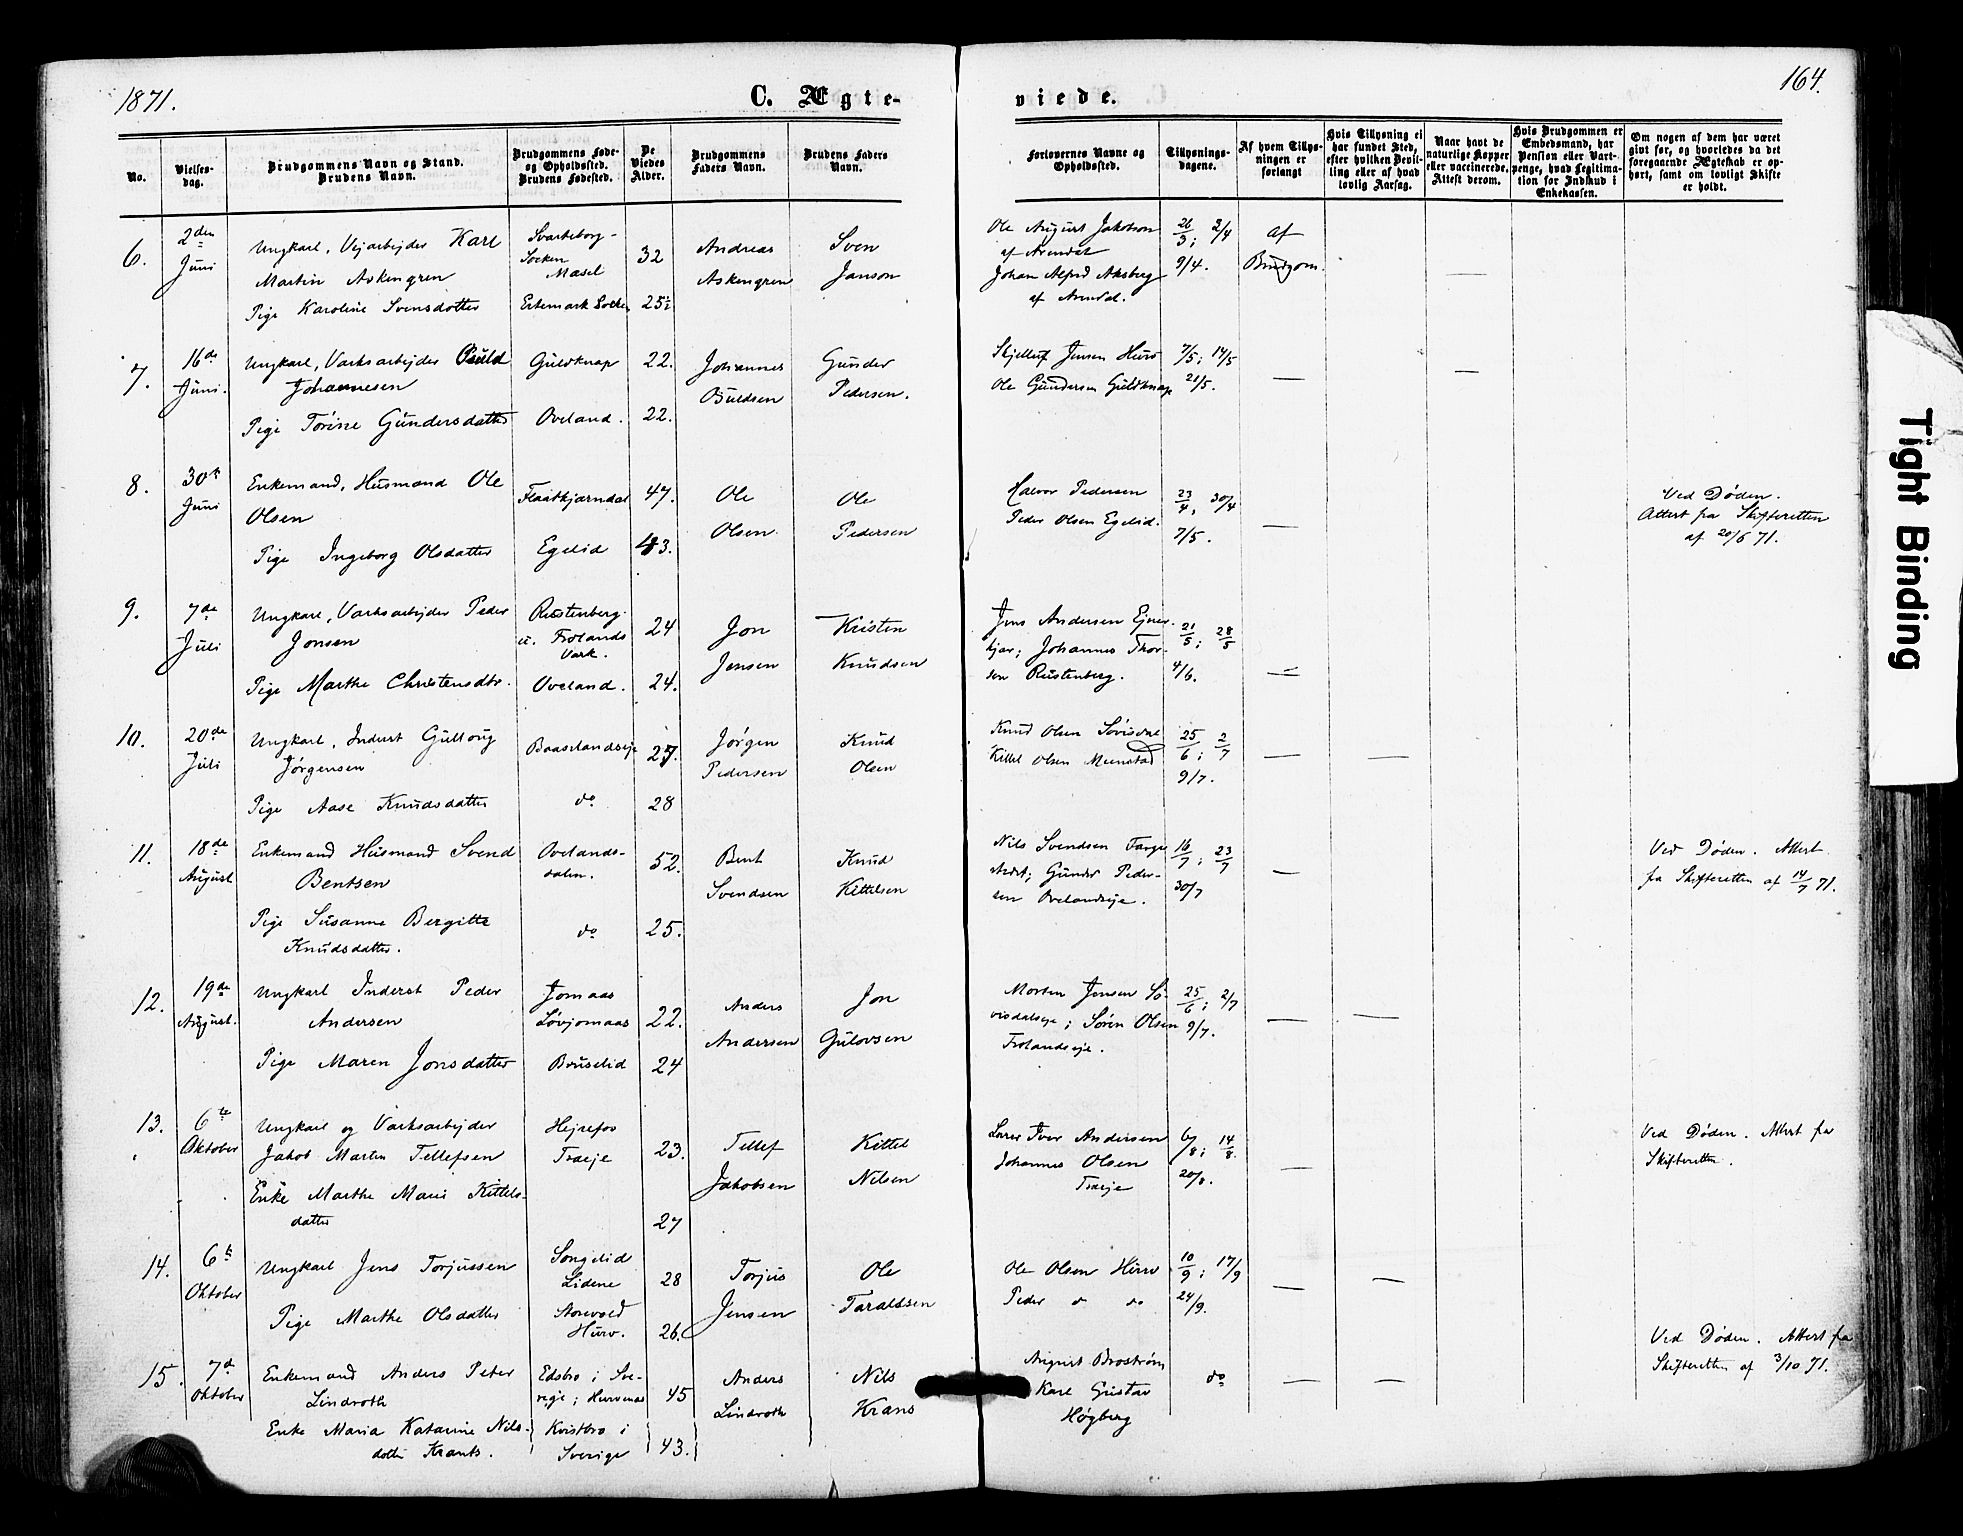 1871.
C. Ægte-
viede.
164.
No.
Vielses-
dag.
Brudgommens Navn og Stand.
Brudens Navn.
Brudgommens Føde-
og Opholdssted.
Brudens Fødested.
De
Viedes
Alder.
Brudgommens
Faders Navn.
Brudens Faders
Navn.
Forlovernes Navne og
Opholdssted.
Tillysnings-
dagene.
Af hvem Tillys-
ningen er
forlangt
Hvis Tillysning ei
har fundet Sted,
efter hvilken Bevil-
ling eller af hvad
lovlig Aarsag.
Naar havt de
naturlige Kopper
eller vaccinerede.
Attest derom.
Hvis Brudgommen er
Embedsmand, har
Pension eller Vart-
penge, hvad Legitima-
tion for Indskud i
Enkekassen.
Om nogen af dem har været
givt før, og hvorledes da det
foregaaende Ægteskab er op-
hørt, samt om lovligt Skifte
er holdt.
6.
2den
Juni
Ungkarl, Vejarbejder Karl
Martin Askengren
Pige Karoline Svensdatter
Svarteborg-
Socken
Ertemark Socken
32
25½
Andreas
Askengren
Sven
Janson
Ole August Jakobson
af Arendal
Johan Alfred Aksberg
af Arendal.
26/3; 2/4
9/4.
af
Brudgom.
7.
16de
Juni.
Ungkarl, Værksarbejder
Johannesen
Pige Torine Gundersdatter
Guldknap
Oveland.
22.
22.
Johannes
Gunder
Pedersen.
Jensen Hurv
Ole Gundersen Guldknap
7/5; 14/5
21/5.
8.
30te
Juni
Enkemand, Husmand Ole
Olsen
Pige Ingeborg Olsdatter
Flaatkjærndal
Egelid
47.
43.
Ole
Olsen
Ole
Pedersen
Halvor Pedersen
Peder Olsen Egelid.
23/4, 30/4
7/5.
Ved Døden.
Attest fra Skifteretten
af 20/6 71.
9.
7de
Juli
Ungkarl, Værksarbejder Peder
Jonsen
Pige Marthe Christensdtr.
Rustenberg
u. Frolands
Værk.
Oveland.
24
24.
Jon
Jensen
Kristen
Knudsen
Jens Andersen
kjær; Johannes Thor-
sen Rustenberg.
21/5; 28/5
4/6.
10.
20de
Juli
Ungkarl, Inderst Gullov
Jørgensen
Pige Aase Knudsdatter
Baaselandseje
do
27.
28
Jørgen
Pedersen
Knud
Olsen
Knud Olsen Sørisdal
Kittel Olsen Mernstad
25/6; 2/7
9/7.
11.
18de
August
Enkemand Husmand Svend
Bentsen
Pige Susanne Bergitte
Knudsdatter.
Ovelands-
dalen.
do
52.
25.
Bent
Svendsen
Knud
Kittelsen
Nils Svendsen Farge
stedet; Gunder Peder-
sen Ovelandseje.
16/7; 23/7
30/7
Ved Døden. Attest
fra Skifteretten af 14/7 71.
12.
19de
August.
Ungkarl Inderst Peder
Andersen
Pige Maren Jonsdatter
Jomaas
Løvjomaas
Bruselid
22.
24
Anders
Andersen
Jon
Gulovsen
Morten Jensen Sø-
visdalseje; Søren Olsen
Frolandseje.
25/6; 2/7
9/7.
13.
6te
Oktober
Ungkarl og Værksarbejder
Jakob Martin Tellefsen
Enke Marthe Marie Kittels-
datter
Hejrefos
Træeje
23.
27
Tellef
Jakobsen
Kittel
Nilsen
Lærer Iver Andersen
Johannes Olsen
Træeje
6/8; 14/8.
20/8.
Ved Døden. Attest fra
Skifteretten.
14.
6te
Oktober
Ungkarl Jens Torjussen
Pige Marthe Olsdatter
Songelid
Lidene
Storevold
Hurv.
28
26.
Torjus
Jensen
Ole
Taraldsen
Ole Olsen Hurv
Peder do do
10/9; 17/9
24/9.
15.
7de
Oktober
Enkemand Anders Peter
Lindroth
Enke Maria Katarine Nils-
datter Krants.
Edsbro i Sve-
rige; Hurvenes
Kvistbro i
Sverige
45
43.
Anders
Lindroth
Nils
Krans
August Broström
Karl Gustav
Høgberg
do
Ved Døden. Attest fra
Skifteretten af 3/10 71.
Tight Binding